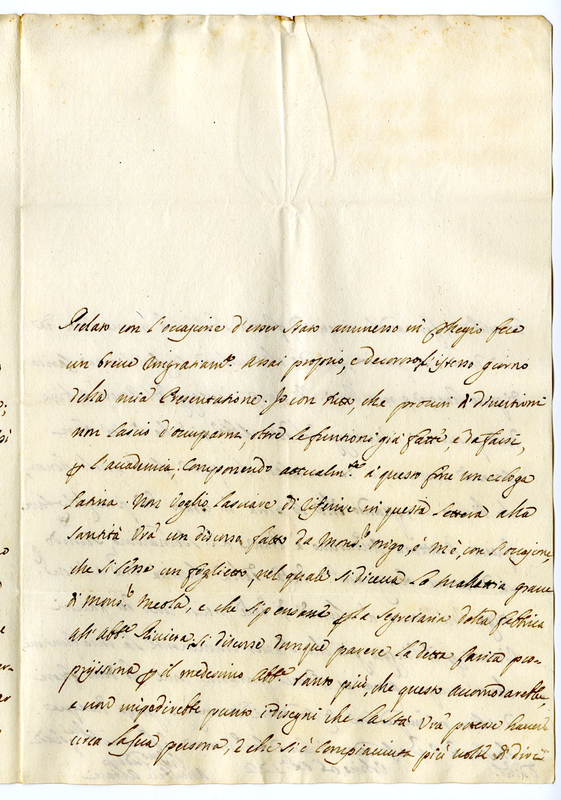 Prelato con l'occasione d'esser stato ammesso in Collegio fece
un breve ringratiam.to assai proprio, e decoroso l'istesso giorno
della mia Presentatione. Io con tutto, che procuri di divertirmi
non lascio d'occuparmi, oltre le funtioni già fatte, e da farsi,
l'accademia, componendo attualm.te a questo fine un ecloga
latina. Non voglio lasciare di riferire in questa lettera alla
Santità V.ra un discorso fatto da Mons.r Origo, e mè, con l'occasione,
che si lesse un foglietto, nel quale si diceva la malattia grave
di Mons.r Meola, e che si pensasse la Segretaria della fabbrica
all' Abb.te Riviera. Si discorse dunque parere la detta carica pro-
prijssima il medesimo Abb.te tanto più, che questo accomodarebbe,
e non impedirebbe punto i disegni che la S.tà V.ra potesse havere
circa la sua persona, e che si è compiaciuta più volte di dire